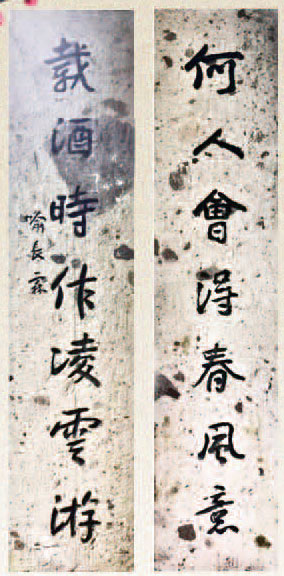 何人會得春風意
載酒時作凌雲游
喻長霖